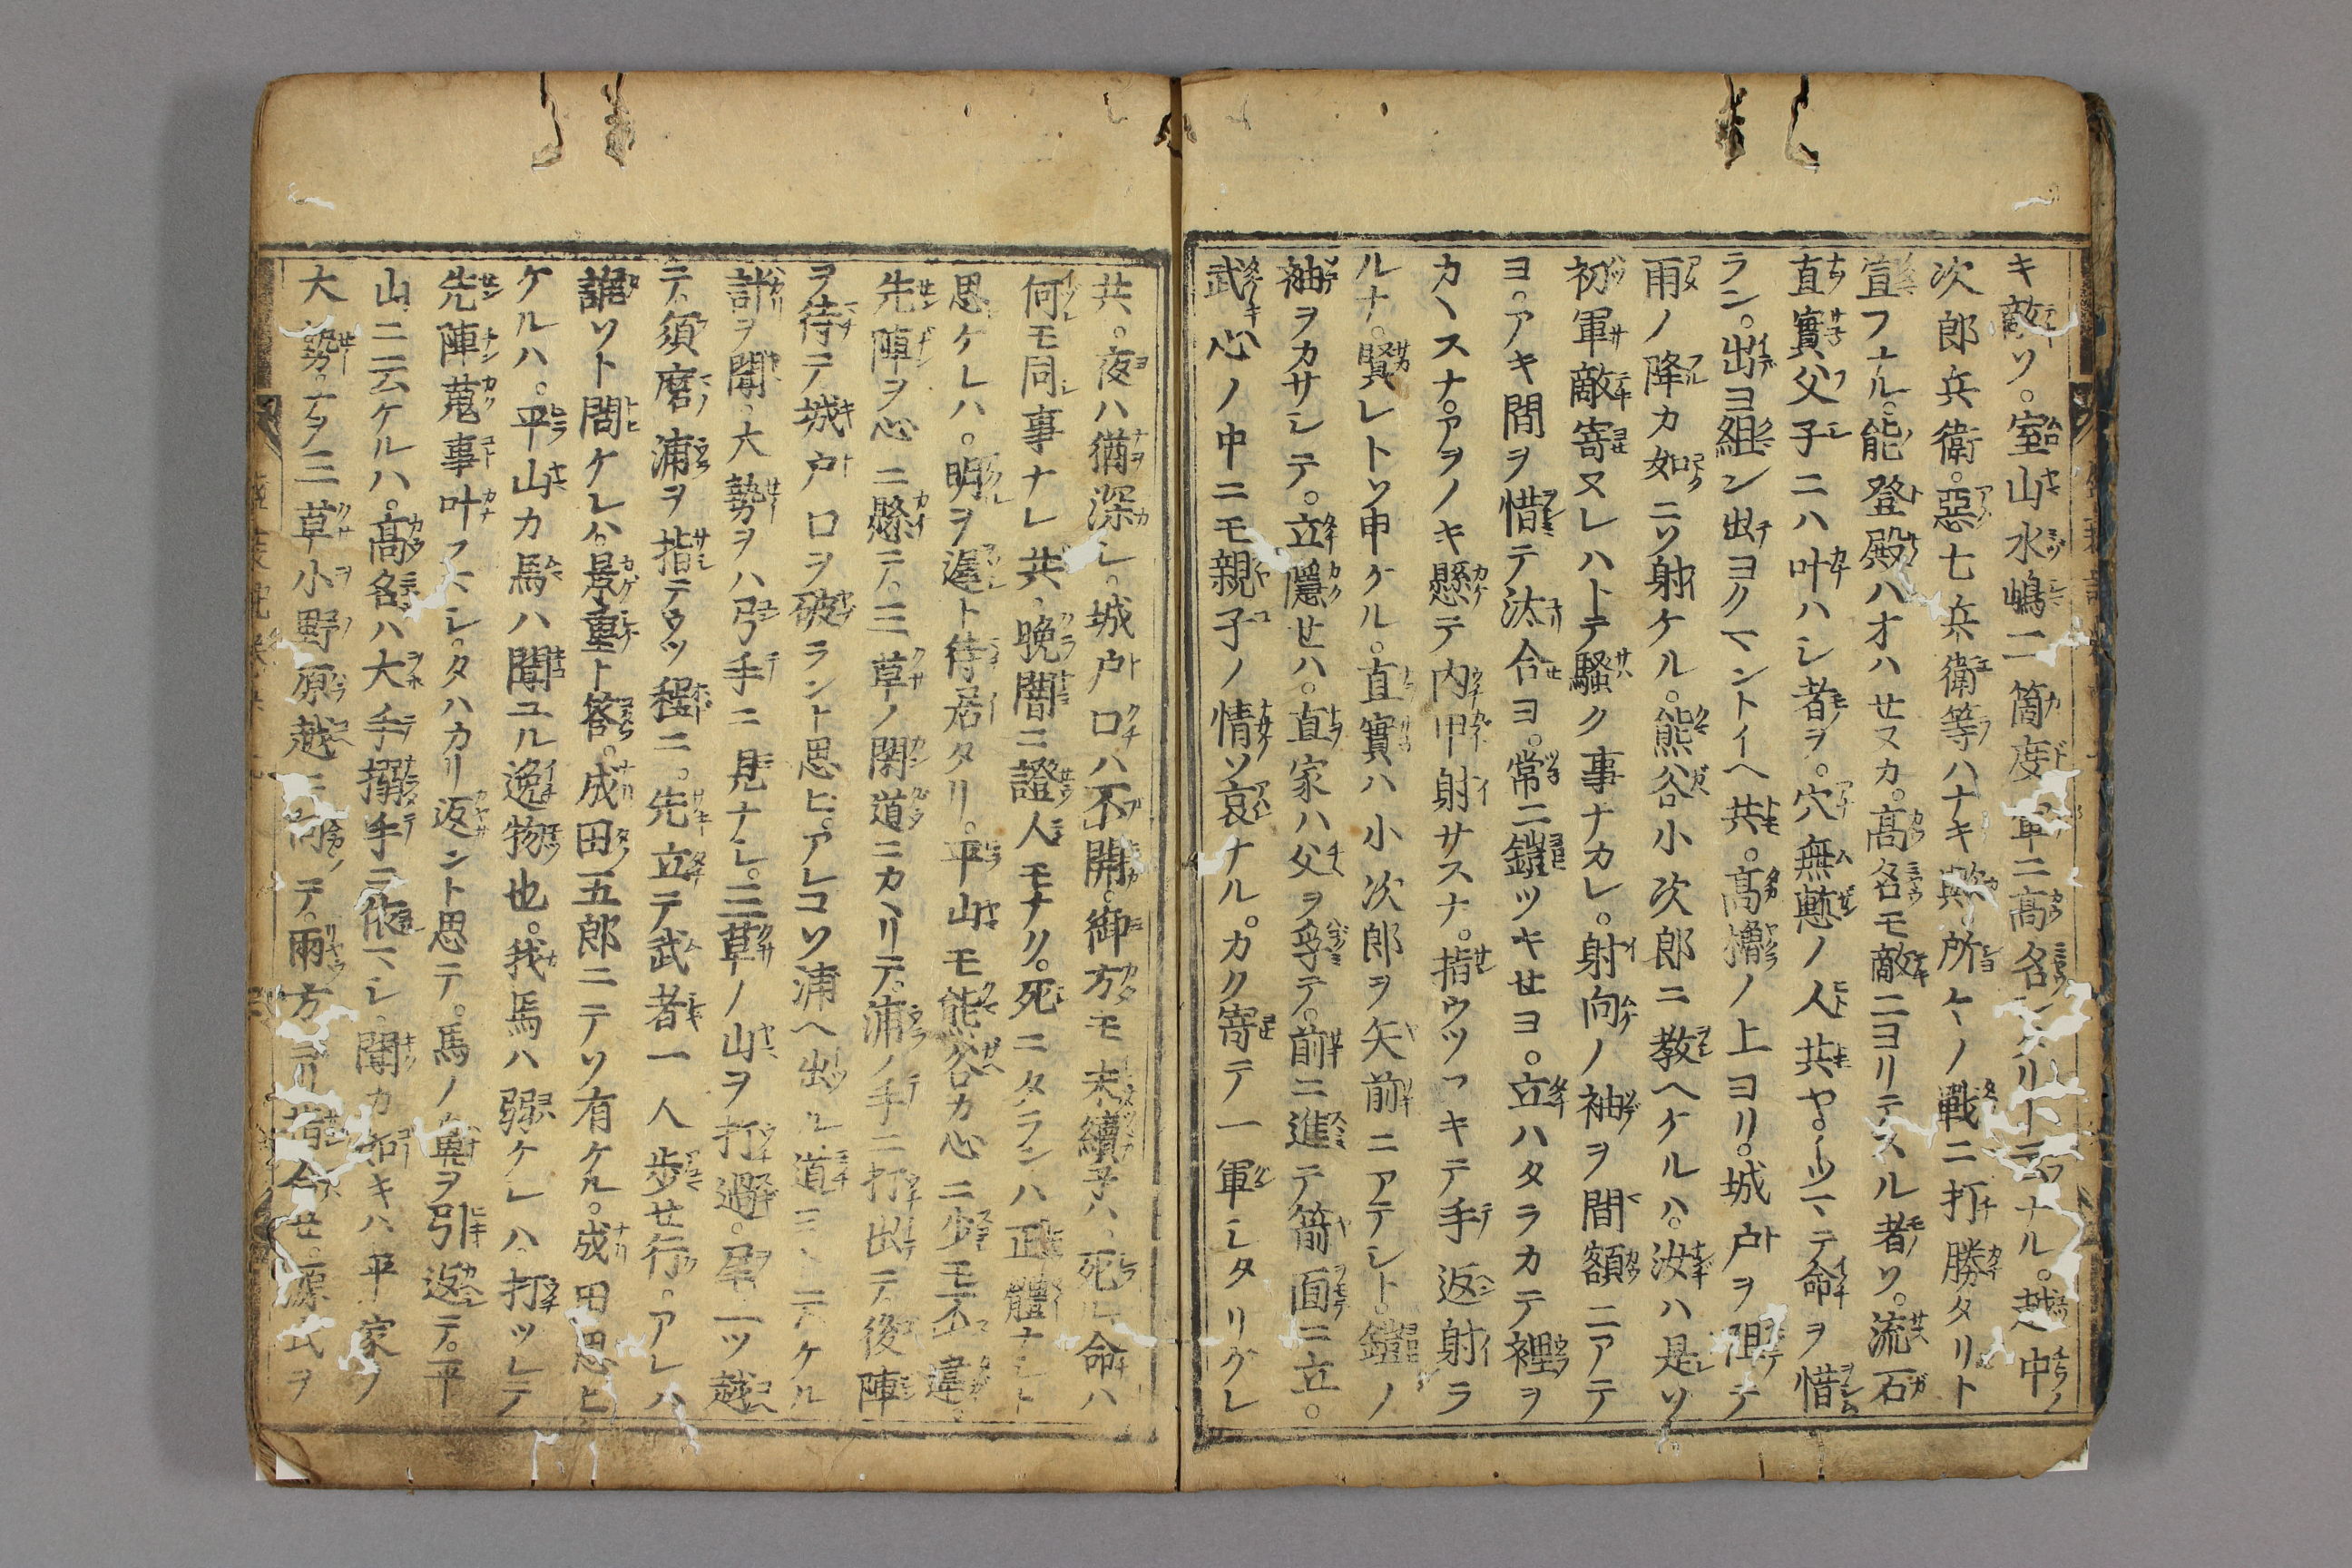 キ敵ソ。室山水嶋二箇度軍ニ高名シタリトテナル。越中
次郎兵衛。惡七兵衛等ハナキ歟所々ノ戰ニ打勝タリト
宣フナル。能登殿ハオハセヌカ。高名モ敵ニヨリテスル者ソ。流石
直實父子ニハ叶ハシ者ヲ。穴無慙ノ人共ヤ。イツマテ命ヲ惜
ラン。出ヨ組ン出ヨクマントイヘ共。高櫓ノ上ヨリ。城戸ヲ阻テ
雨ノ降カ如ニソ射ケル。熊谷小次郎ニ教ヘケルハ。汝ハ是ソ
初軍敵寄ヌレハトテ騒ク事ナカレ。射向ノ袖ヲ間額ニアテ
ヨ。アキ間ヲ惜テ汰合ヨ。常ニ鎧ツキセヨ。立ハタラカテ裡ヲ
カヽスナ。アヲノキ懸テ内甲射サスナ。指ウツフキテ手返射ラ
ルナ。賢レトソ申ケル。直實ハ小次郎ヲ矢前ニアテシト。鎧ノ
袖ヲカサシテ。立隱セハ。直家ハ父ヲ孚テ。前ニ進テ箭面ニ立。
武心ノ中ニモ親子ノ情ソ哀ナル。カク寄テ一軍シタリクレ
共。夜ハ猶深シ。城戸口ハ不開。御方モ未續子ハ、死ル命ハ
何モ同事ナレ共、晩闇ニ證人モナリ。死ニタランハ正體ナシト
思ケレハ。明ヲ遲ト待居タリ。平山モ熊谷カ心ニ少モ不違。
先陣ヲ心ニ懸テ。三草ノ閑道ニカヽリテ。浦ノ手ニ打出テ後陣
ヲ待テ城戸口ヲ破ラント思ヒ。アレコソ浦ヘ出ル道ヨトテケル
計ヲ聞、大勢ヲハ弓手ニ見ナシ。三草ノ山ヲ打過。尾一ツ越
テ。須磨浦ヲ指テウツ程ニ。先立テ武者一人歩セ行。アレハ
誰ソト問ケレハ。景重ト答。成田五郎ニテソ有ケル。成田思ヒ
ケルハ。平山カ馬ハ聞ユル逸物也。我馬ハ弱ケレハ打ツレテ
先陣蒐事叶フマシ。タハカリ返ント思テ。馬ノ鼻ヲ引返テ。平
山ニ云ケルハ。高名ハ大手搦手ニ依マシ。闇カ如キハ平家ノ
大勢ナヲ三草小野原越ニ向テ。兩方ヨリ揩合セ。源氏ヲ